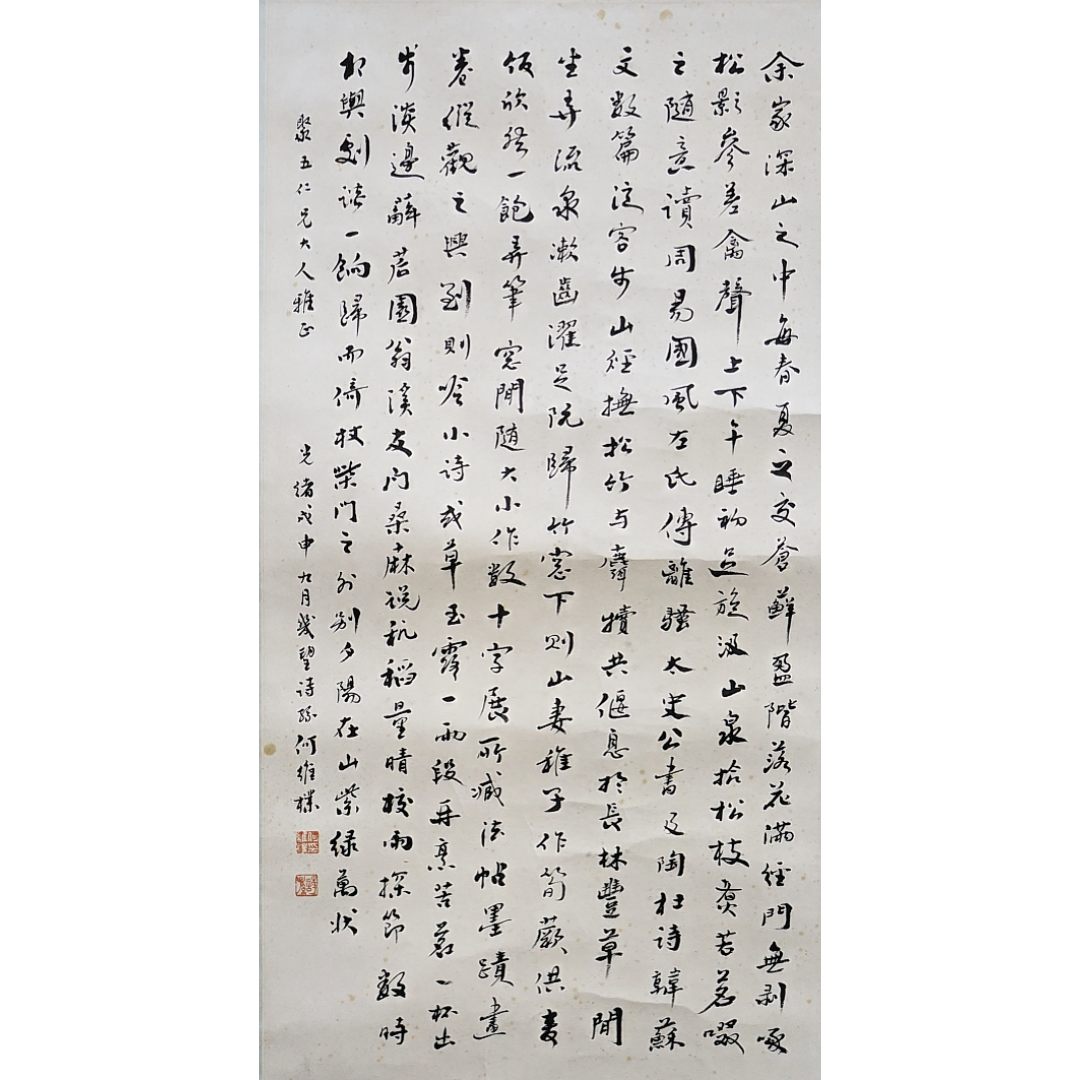 余家深山之中每春夏之交蒼蘚盈階落花滿徑門無剥啄
松影參差禽聲上下午睡初足旋汲山泉拾松枝煑苦茗啜
之隨意讀周易國風左氏傳離騷太史公書及陶杜詩韓蘇
文數篇從容步山徑撫松竹与麛犢共偃息於長林豐草間
坐弄流泉漱齒濯足既歸竹窓下則山妻稚子作筍蕨供麥
飯欣然一飽弄筆窓間隨大小作數十字展所藏法帖墨蹟畫
卷縱觀之興到則吟小詩或草玉露一兩段再烹苦茗一杯出
步溪邊解后園翁溪友问桑麻说秔稻量晴校雨探節數時
相與劇談一餉歸而倚杖柴門之外則夕陽在山紫绿萬狀
聚五仁兄大人雅正
光緒戊申九月幾望詩孫何維樸